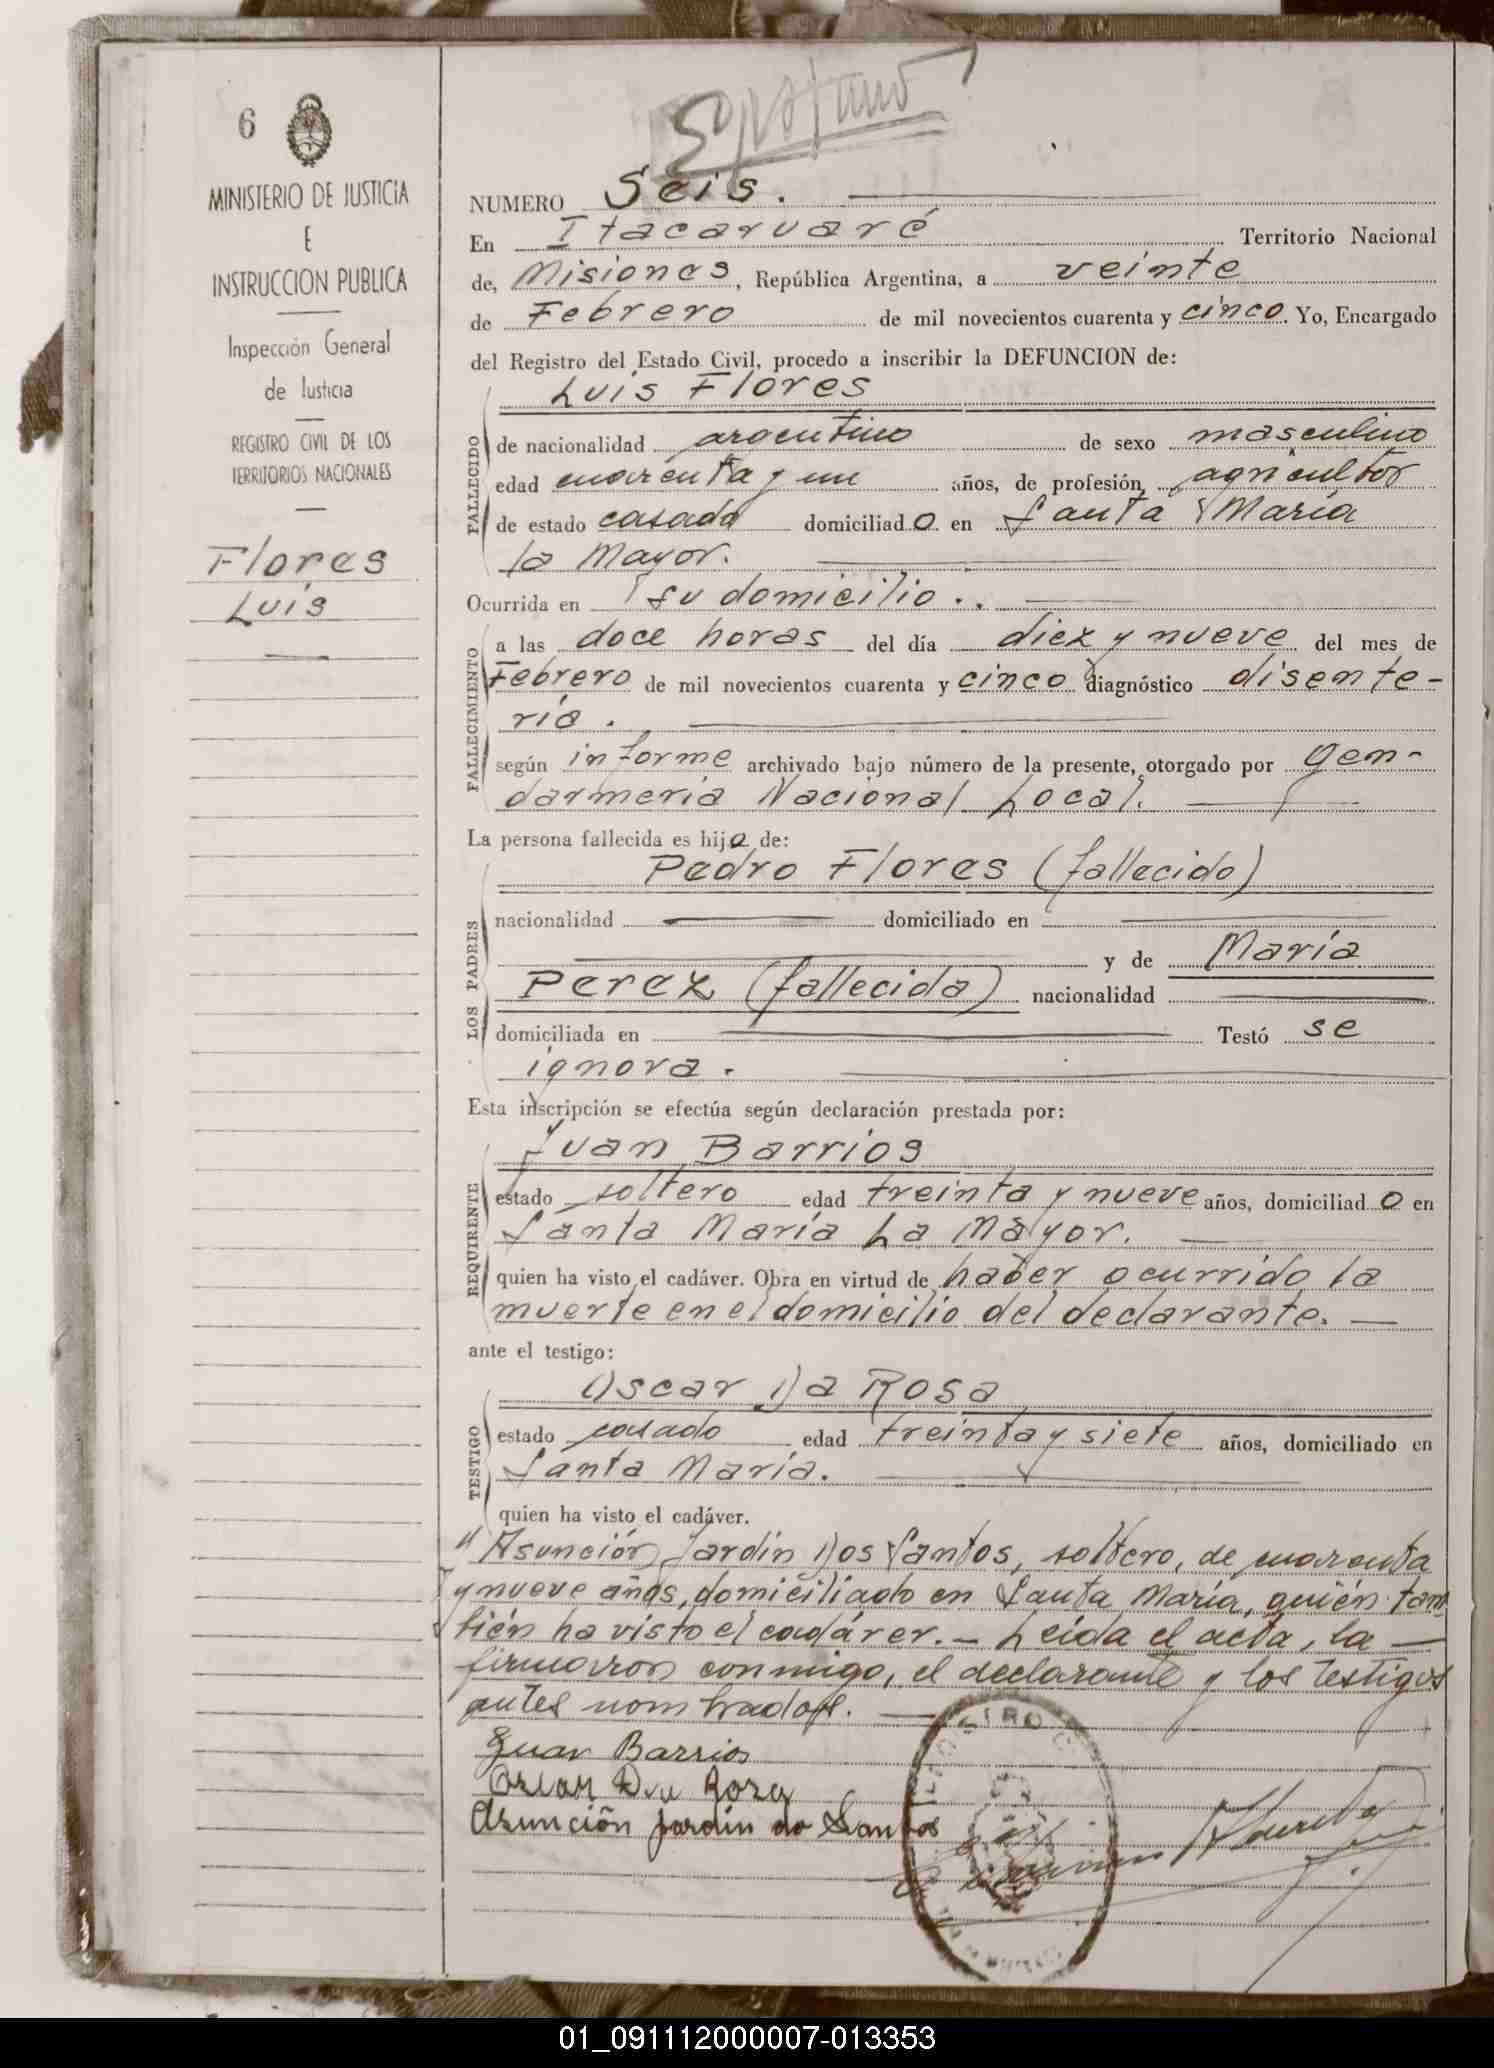 6
MINISTERIO DE JUSTICIA
E
INSTRUCCION PUBLICA
Inspección General
de Justicia
REGISTRO CIVIL DE LOS
TERRITORIOS NACIONALES
Flores
Luis
NUMERO Seis.
En Itacaruaré Territorio Nacional
de, Misiones, República Argentina, a veinte
de Febrero de mil novecientos cuarenta y cinco. Yo, Encargado
del Registro del Estado Civil, procedo a inscribir la DEFUNCION de:
Luis Flores
FALLECIDO
de nacionalidad argentino de sexo masculino
edad cuarenta y un años, de profesión, agricultor
de estado casado domiciliado en Santa María
la Mayor.
Ocurrida en su domicilio..
FALLECIMIENTO
a las doce horas del día diez y nueve del mes de
Febrero de mil novecientos cuarenta y cinco diagnóstico disente-
ría.
según informe archivado bajo número de la presente, otorgado por Gen-
darmería Nacional Local.
La persona fallecida es hijo de:
Pedro Flores (fallecido)
LOS PADRES
nacionalidad domiciliado en
y de María
Perez (fallecida) nacionalidad
domiciliada en Testó se
ignora.
Esta inscripción se efectúa según declaración prestada por:
Juan Barrios
REQUIRENTE
estado soltero edad treinta y nueve años, domiciliado en
Santa María La Mayor.
quien ha visto el cadáver. Obra en virtud de haber ocurrido la
muerte en el domicilio del declarante.
ante el testigo:
Oscar Da Rosa
TESTIGO
estado casado edad treinta y siete años, domiciliado en
Santa María.
quien ha visto el cadáver.
y Asunción Jardin Dos Santos, soltero, de cuarenta
y nueve años, domiciliado en Santa María, quién tam
bién ha visto el cadáver.- Leída el acta, la
firmaron conmigo, el declarante y los testigos
antes nombrados.
Juan Barrios
Oscar Da Rosa
Asunción jardin do Santos
01_091112000007-013353